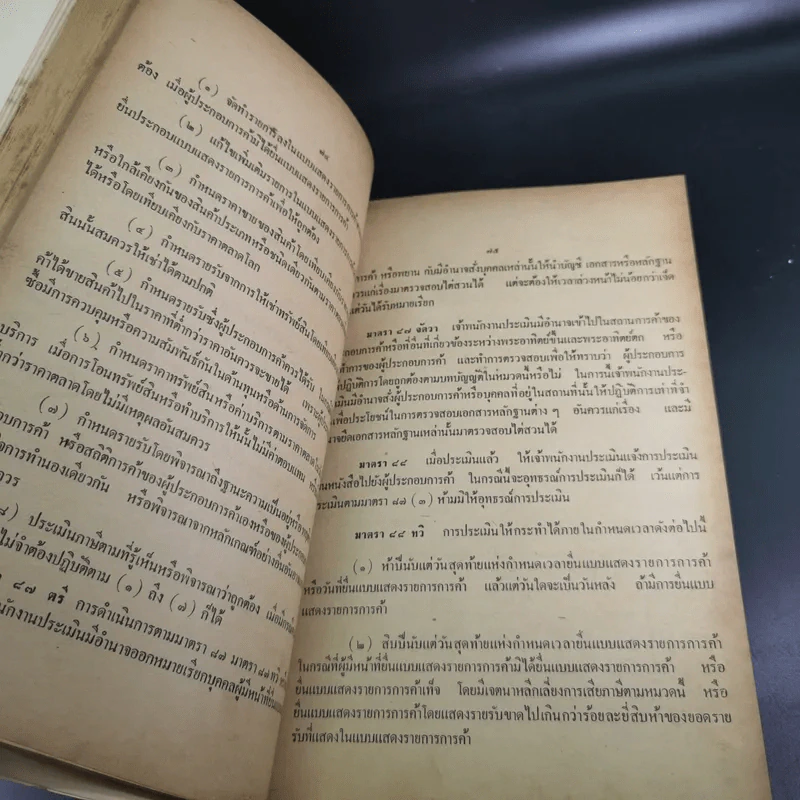 ๗๔
(๑) จัดทำรายการลงในแบบแสดงรายการการค้า
ต้อง เมื่อผู้ประกอบการค้ามิได้ยื่นแบบแสดงรายการการค้า
(๒) แก้ไขเพิ่มเติมรายการในแบบแสดงรายการ
ยื่นประกอบแบบแสดงรายการการค้าเพื่อให้ถูกต้อง
(๓) กำหนดราคาขายของสินค้าโดยเทียบเคียง
หรือใกล้เคียงกันของสินค้าประเภทหรือชนิดเดียวกันตามราคา
ได้หรือโดยเทียบเคียงกับราคาตลาดโลก
(๔) กำหนดรายรับจากการให้เช่าทรัพย์สินโดย
สินนั้นสมควรให้เช่าได้ตามปกติ
(๕) กำหนดรายรับซึ่งผู้ประกอบการค้าควรได้รับ
ค้าได้ขายสินค้าไปในราคาที่ต่ำกว่าราคาอันควรจะขายได้ เพราะผู้
ซื้อมีการควบคุมหรือความสัมพันธ์กันในด้านทุนหรือด้านการจัดการ
(๖) กำหนดราคาทรัพย์สินหรือค่าบริการตามราคาตลาด
บริการ เมื่อการโอนทรัพย์สินหรือทำบริการให้นั้นไม่มีค่าตอบแทน
กว่าราคาตลาดโดยไม่มีเหตุผลอันสมควร
(๗) กำหนดรายรับโดยพิจารณาถึงฐานะความเป็นอยู่หรือ
อบการค้า หรือสถิติการค้าของผู้ประกอบการค้าเองหรือของผู้
จการทำนองเดียวกัน หรือพิจารณาจากหลักเกณฑ์อย่างอื่นอัน
ควร
๘) ประเมินภาษีตามที่รู้เห็นหรือพิจารณาว่าถูกต้อง เมื่อมี
ไม่จำต้องปฏิบัติตาม (๑) ถึง (๗) ก็ได้
๘๗ ตรี การดำเนินการตามมาตรา ๘๗ มาตรา ๘๗ ทวิ
นักงานประเมินมีอำนาจออกหมายเรียกบุคคลผู้มีหน้าที่ยื่น
๗๕
การค้า หรือพยาน กับมีอำนาจสั่งบุคคลเหล่านั้นให้นำบัญชี เอกสารหรือหลักฐาน
ควรแก่เรื่องมาตรวจสอบไต่สวนได้ แต่จะต้องให้เวลาล่วงหน้าไม่น้อยกว่าเจ็ด
แต่วันได้รับหมายเรียก
มาตรา ๘๗ จัตวา เจ้าพนักงานประเมินมีอำนาจเข้าไปในสถานการค้าของ
ประกอบการค้าหรือที่อื่นที่เกี่ยวข้องระหว่างพระอาทิตย์ขึ้นและพระอาทิตย์ตก หรือ
ทำการของผู้ประกอบการค้า และทำการตรวจสอบเพื่อให้ทราบว่า ผู้ประกอบการ
ปฏิบัติการโดยถูกต้องตามบทบัญญัติในหมวดนี้หรือไม่ ในการนี้เจ้าพนักงานประ-
มีอำนาจสั่งผู้ประกอบการค้าหรือบุคคลที่อยู่ในสถานที่นั้นให้ปฏิบัติการเท่าที่จำ
เพื่อประโยชน์ในการตรวจสอบเอกสารหลักฐานต่าง ๆ อันควรแก่เรื่อง และมี
นาจยึดเอกสารหลักฐานเหล่านั้นมาตรวจสอบไต่สวนได้
มาตรา ๘๘ เมื่อประเมินแล้ว ให้เจ้าพนักงานประเมินแจ้งการประเมิน
เป็นหนังสือไปยังผู้ประกอบการค้า ในกรณีนี้จะอุทธรณ์การประเมินก็ได้ เว้นแต่การ
ประเมินตามมาตรา ๘๗ (๓) ห้ามมิให้อุทธรณ์การประเมิน
มาตรา ๘๘ ทวิ การประเมินให้กระทำได้ภายในกำหนดเวลาดังต่อไปนี้
(๑) ห้าปีนับแต่วันสุดท้ายแห่งกำหนดเวลายื่นแบบแสดงรายการการค้า
หรือวันที่ยื่นแบบแสดงรายการการค้า แล้วแต่วันใดจะเป็นวันหลัง ถ้ามีการยื่นแบบ
แสดงรายการการค้า
(๒) สิบปีนับแต่วันสุดท้ายแห่งกำหนดเวลายื่นแบบแสดงรายการการค้า
ในกรณีที่ผู้มีหน้าที่ยื่นแบบแสดงรายการการค้ามิได้ยื่นแบบแสดงรายการการค้า หรือ
ยื่นแบบแสดงรายการการค้าเท็จ โดยมีเจตนาหลีกเลี่ยงการเสียภาษีตามหมวดนี้ หรือ
ยื่นแบบแสดงรายการการค้าโดยแสดงรายรับขาดไปเกินกว่าร้อยละยี่สิบห้าของยอดราย
รับที่แสดงในแบบแสดงรายการการค้า